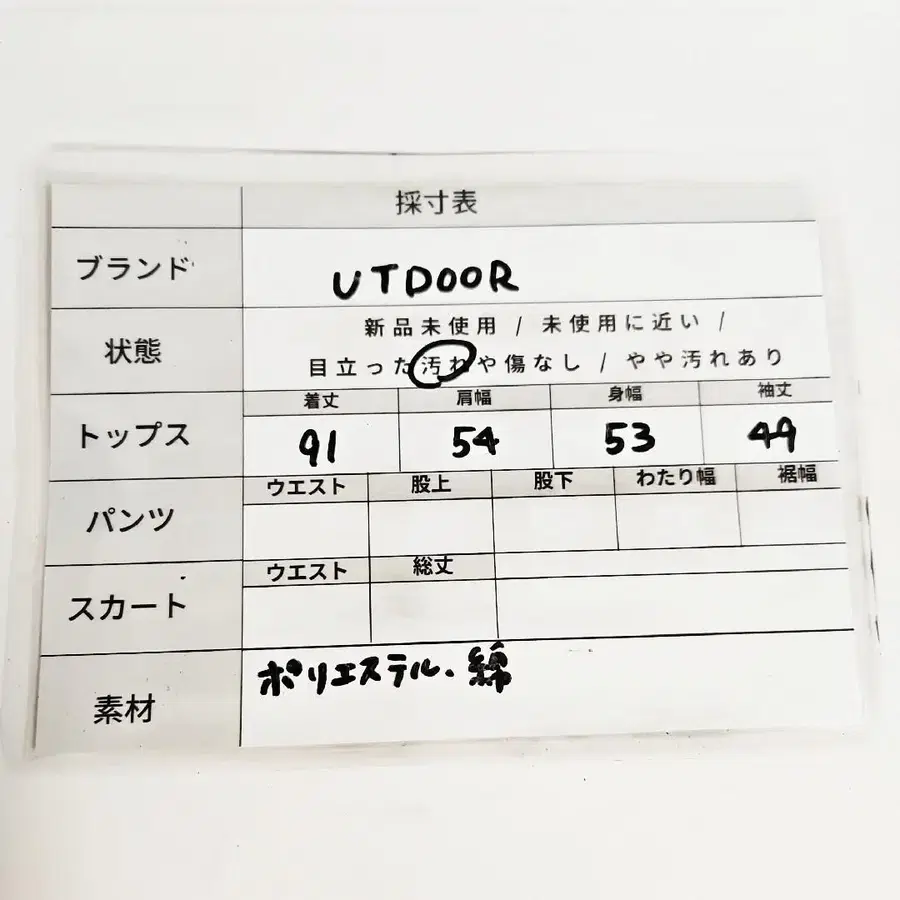 採寸表
ブランド UTDOOR
状態 新品未使用 / 未使用に近い /
目立った汚れや傷なし / やや汚れあり
着丈 肩幅 身幅 袖丈
トップス 91 54 53 49
ウエスト 股上 股下 わたり幅 裾幅
パンツ
ウエスト 総丈
スカート
素材 ポリエステル・綿